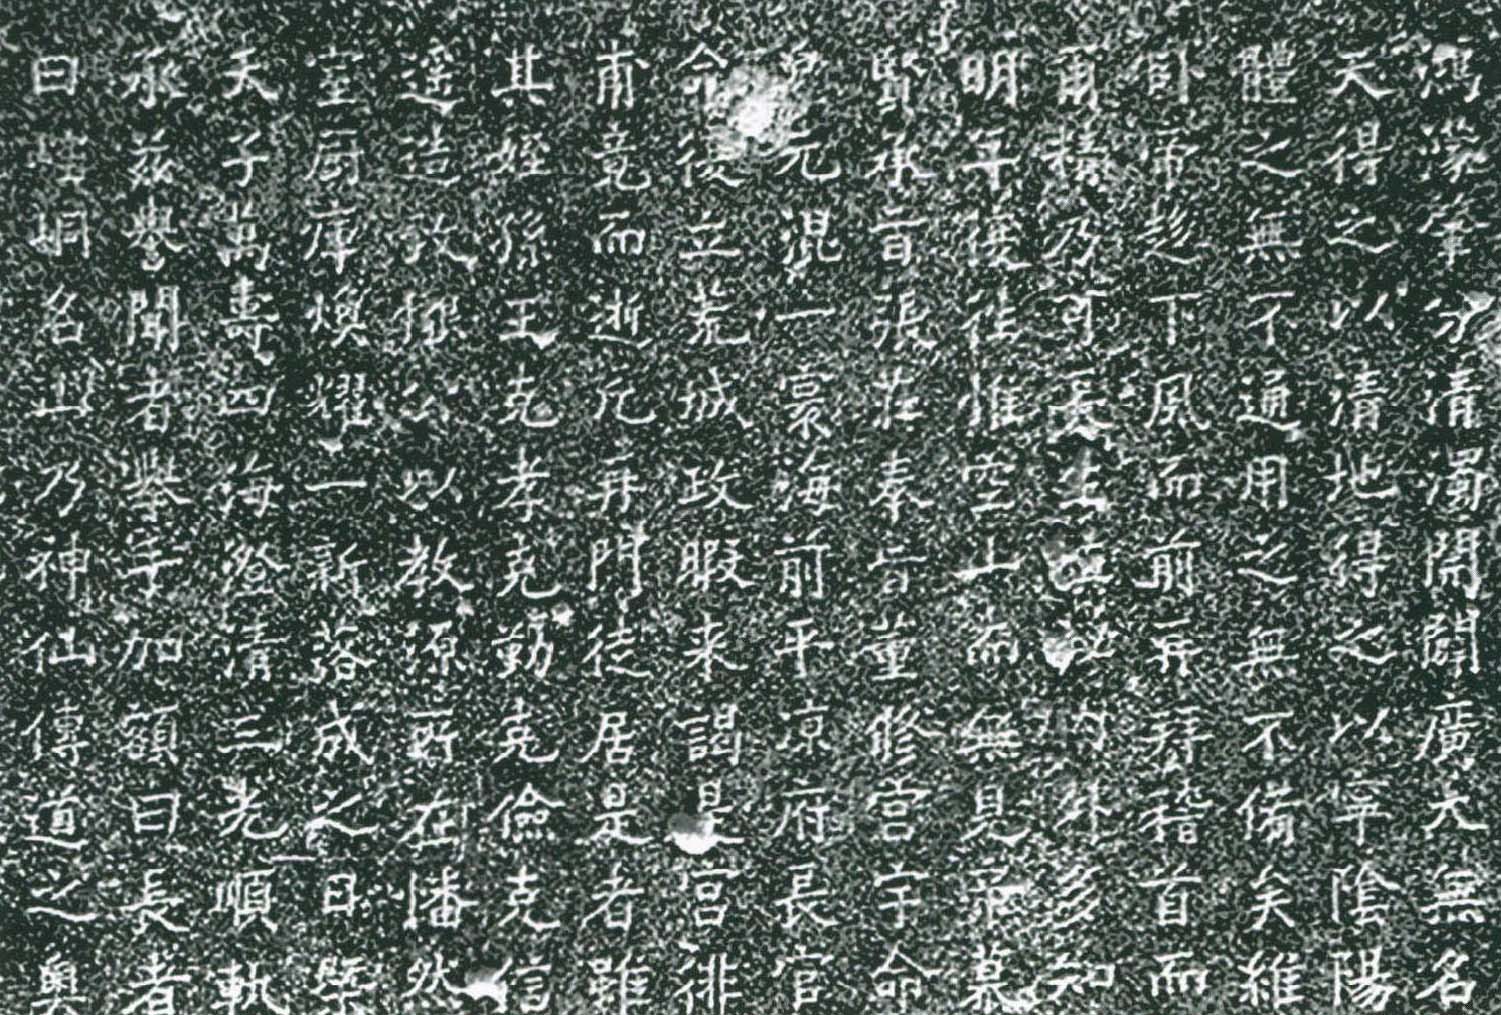 鴻濛肇分清濁開闢廣大無名
天得之以清地得之以寧陰陽
體之無不通用之無不備矣維
帝趍下風而前再拜稽首而
爾積乃可
明年復往惟空山而無見帝慕
賢承旨張莊奉旨董修宮宇命
元混一寰海前平京府長官
命復立荒城政暇来謁是宮徘
甫竟而逝凡再門徒居是者雖
其姪孫王克孝克勤克儉克信
遥造致極公以教源所在幡然
室厨庫煥耀一新落成之日棨
天子萬壽四海澄清三光順軌
承茲譽聞者舉手加額曰長者
曰崆峒名山乃神仙傳道之奥